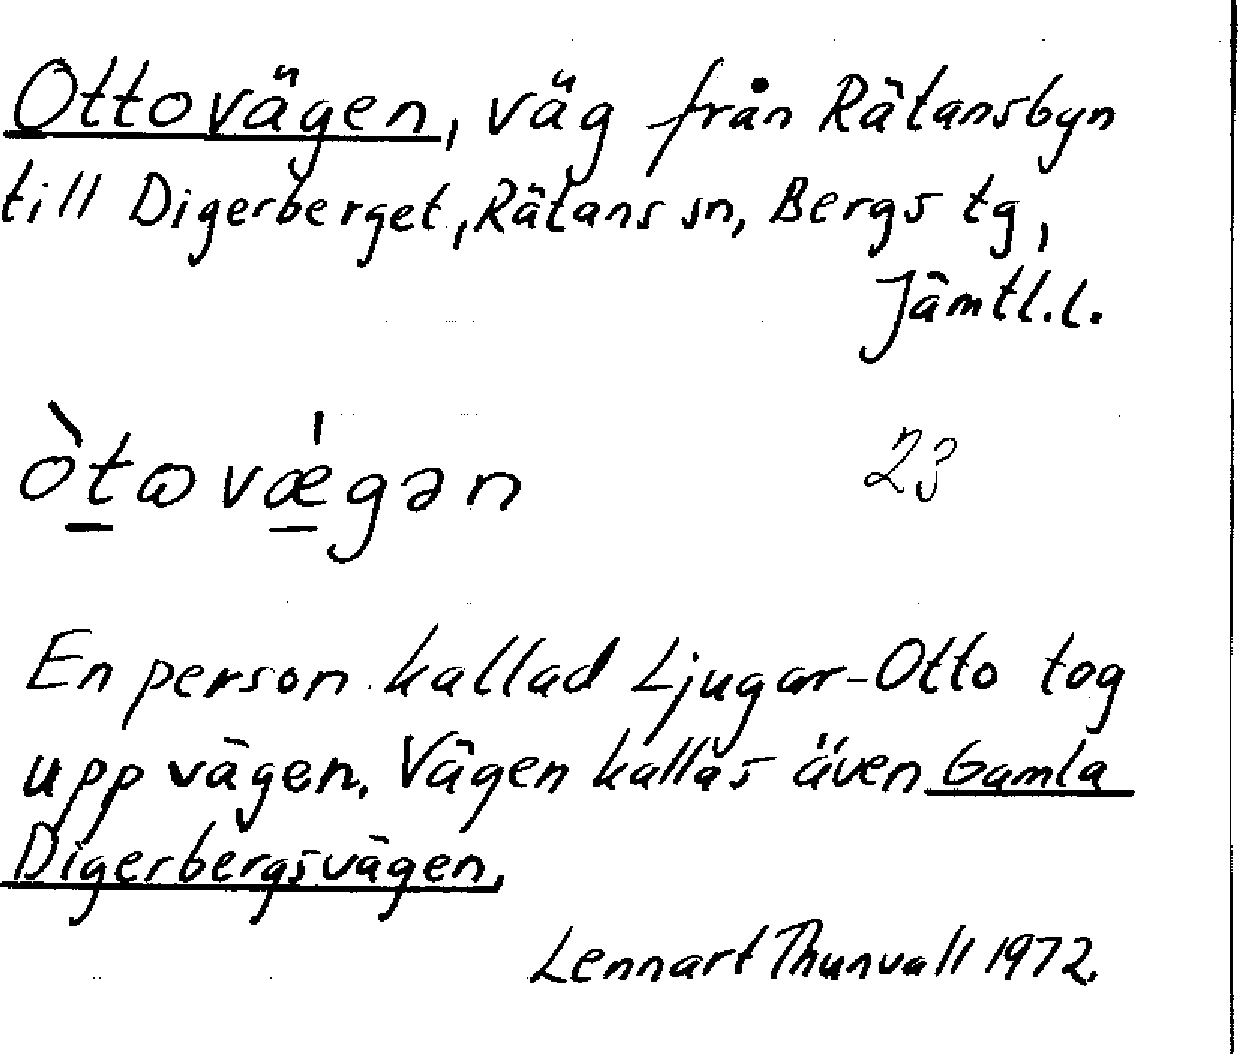 Ottovägen, väg från Rätansbyn
till Digerberget, Rätans sn, Bergs tg,
Jämtl.l.
òt̲ωvǽ̲gən
23
En person kallad Ljugar-Otto tog
upp vägen. Vägen kallas även Gamla
Digerbergsvägen.
Lennart Thunvall 1972.